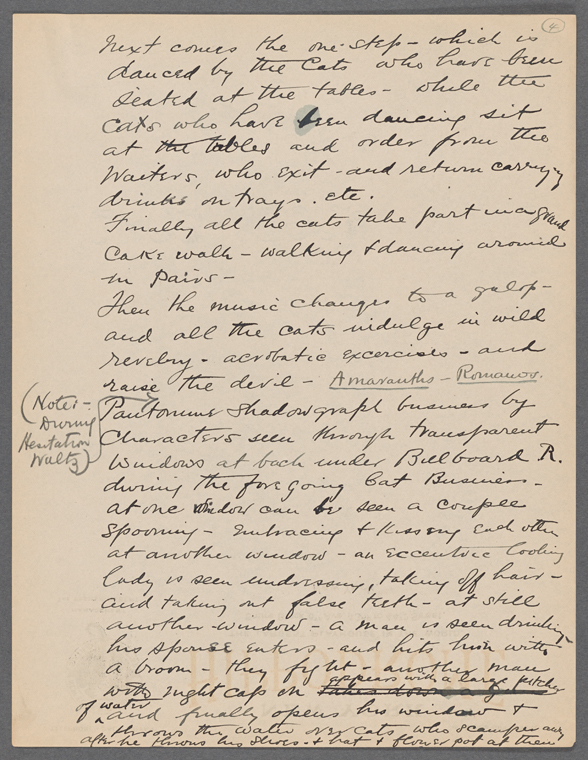 4
Next comes the one-step - which is
danced by the Cats who have been
seated at the tables - while the
cats who have been dancing sit
at the tables and order from the
Waiters, who exit - and return carrying
drinks on trays. etc.
Finally all the cats take part in a grand
Cake walk - walking & dancing around
in pairs -
Then the music changes to a galop -
and all the cats indulge in wild
revelry - acrobatic excercises - and
raise the devil - Amaranths - Romanos.
(Note: -
During
Hesitation
Waltz)
Pantomime Shadowgraph business by
Characters seen through transparent
Windows at back under Billboard R.
during the foregoing Cat Business -
at one window can be seen a couple
Spooning - Embracing & Kissing each other
at another window - an eccentric looking
lady is seen undressing, taking off hair -
and taking out false teeth - at still
another - window - a man is seen drinking -
his spouse enters - and hits him with
a broom - they fight - another man
with night cap on appears with a large pitcher
of water and finally opens his window &
throws the water over cats who scamper away
after he throws his shoes - & hat & flower pot at them